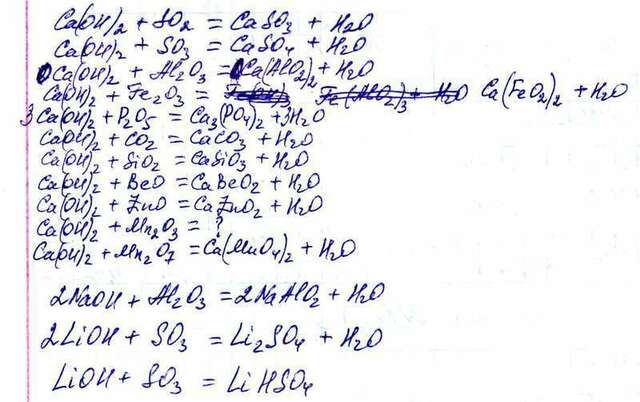 Ca(OH)2 + SO2 = CaSO3 + H2O
Ca(OH)2 + SO3 = CaSO4 + H2O
Ca(OH)2 + Al2O3 = Ca(AlO2)2 + H2O
Ca(OH)2 + Fe2O3 = Ca(FeO2)2 + H2O
3Ca(OH)2 + P2O5 = Ca3(PO4)2 + 3H2O
Ca(OH)2 + CO2 = CaCO3 + H2O
Ca(OH)2 + SiO2 = CaSiO3 + H2O
Ca(OH)2 + BeO = CaBeO2 + H2O
Ca(OH)2 + ZnO = CaZnO2 + H2O
Ca(OH)2 + Mn2O3 = ?
Ca(OH)2 + Mn2O7 = Ca(MnO4)2 + H2O
2NaOH + Al2O3 = 2NaAlO2 + H2O
2LiOH + SO3 = Li2SO4 + H2O
LiOH + SO3 = LiHSO4